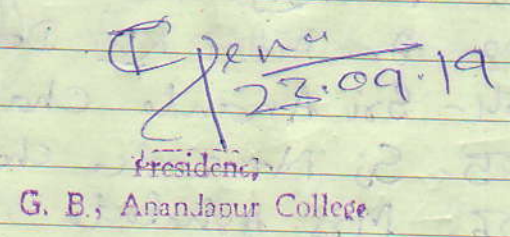 23.09.19
President
G. B., Anandapur College